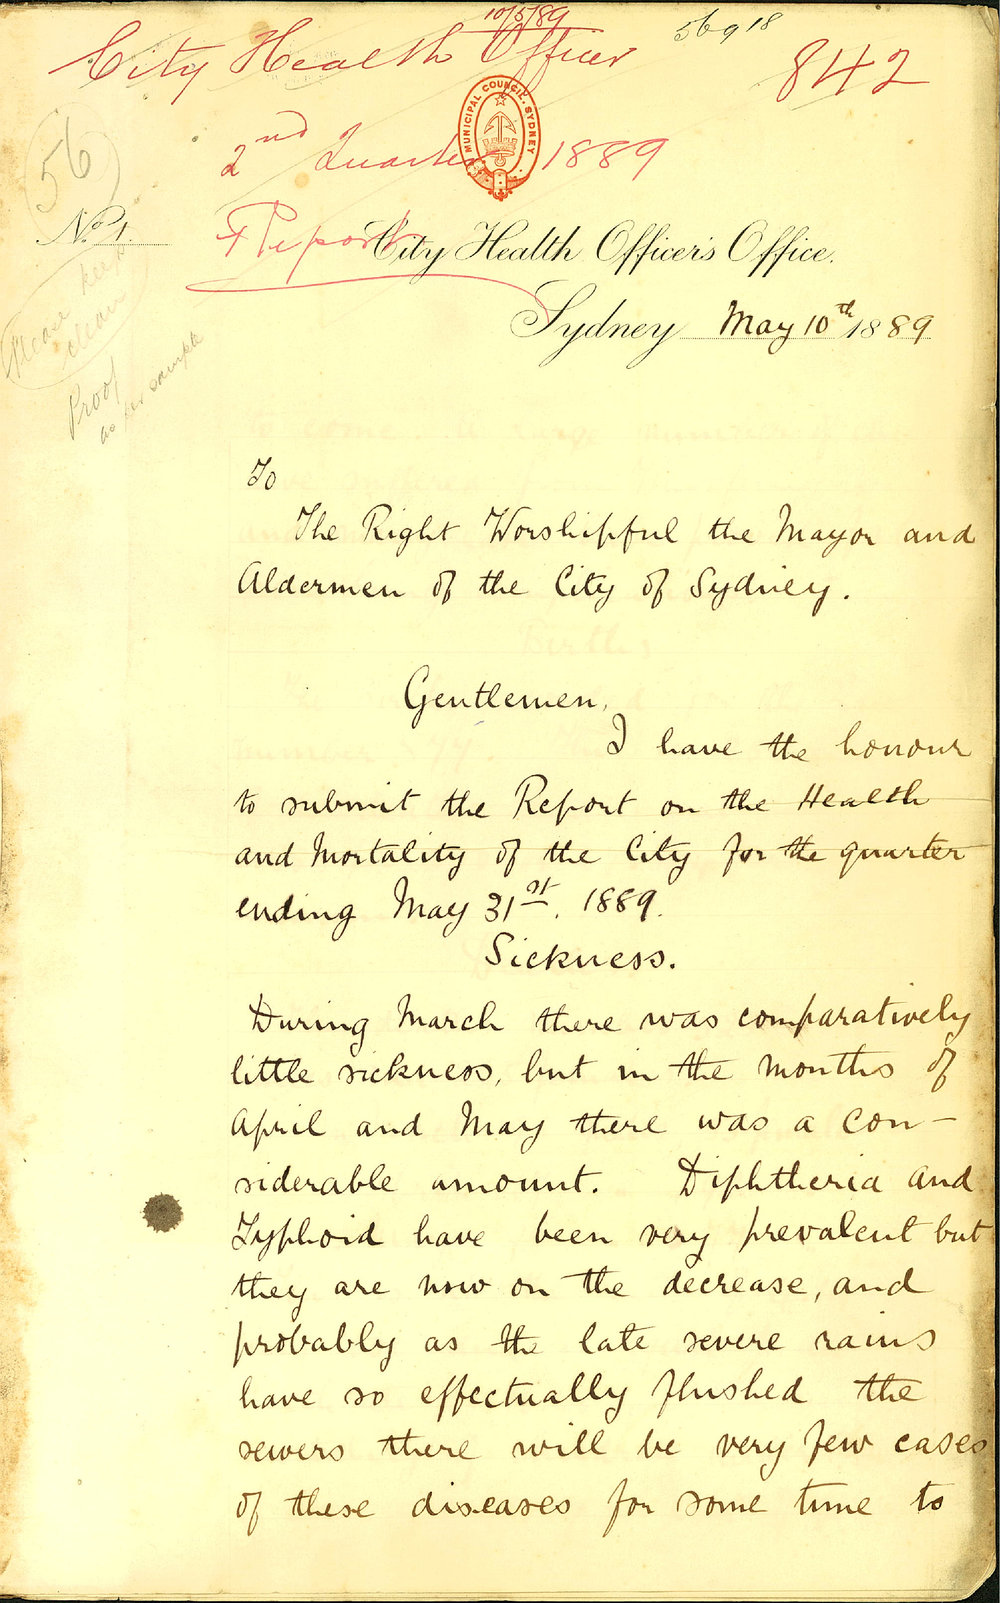 10/5/89
City Health Officer
56918
842
MUNICIPAL COUNCIL. SYDNEY
2nd Quarter 1889
56
No. 1.
Report
City Health Officer's Office.
Please keep
clean
Sydney May 10th 1889
Proof
as per sample
To
The Right Worshipful the Mayor and
Aldermen of the City of Sydney.
Gentlemen,
I have the honour
to submit the Report on the Health
and Mortality of the City for the quarter
ending May 31st. 1889.
Sickness.
During March there was comparatively
little sickness, but in the months of
April and May there was a con-
siderable amount. Diphtheria and
Typhoid have been very prevalent but
they are now on the decrease, and
probably as the late severe rains
have so effectually flushed the
sewers there will be very few cases
of these diseases for some time to